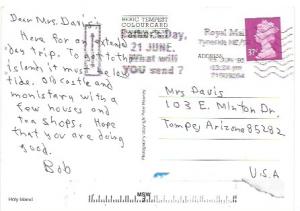 Dear Mrs. Davis:
Here for an extend
day trip. To get to the
island, it must be low
tide. Old castle and
monistary with a
few houses and
tea shops. Hope
that you are doing
good.
Bob
Holy Island
COLOURCARD
Father's Day,
21 JUNE.
What will
YOU send?
Royal Mail
Tyneside NE/
Mrs Davis
103 E. Minton Dr.
Tempe, Arizona 85282
U.S.A
MSW